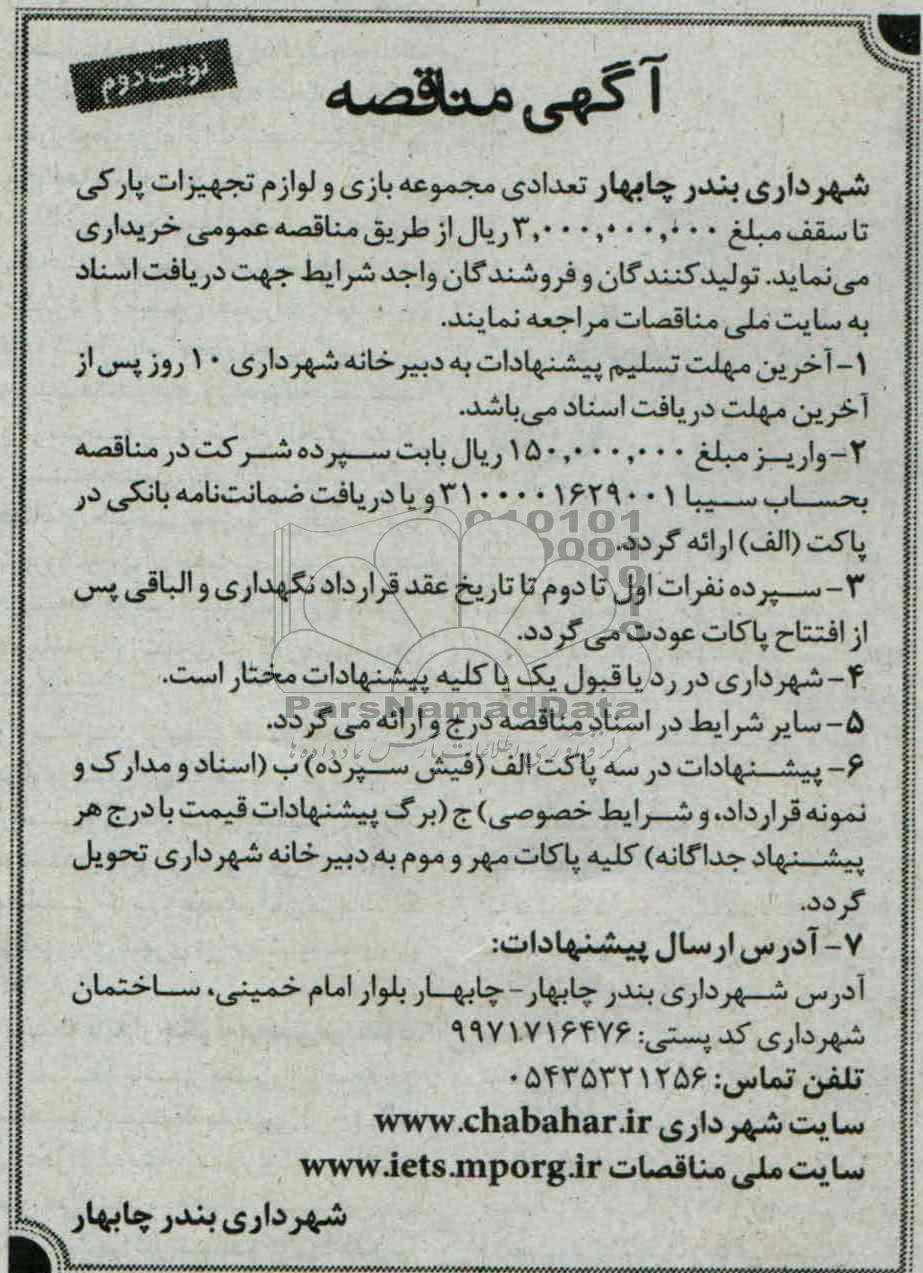 نوبت دوم
آگهی مناقصه
شهرداری بندر چابهار تعدادی مجموعه بازی و لوازم تجهیزات پارکی
تا سقف مبلغ ۳,۰۰۰,۰۰۰,۰۰۰ ریال از طریق مناقصه عمومی خریداری
می‌نماید. تولیدکنندگان و فروشندگان واجد شرایط جهت دریافت اسناد
به سایت ملی مناقصات مراجعه نمایند.
۱- آخرین مهلت تسلیم پیشنهادات به دبیرخانه شهرداری ۱۰ روز پس از
آخرین مهلت دریافت اسناد می‌باشد.
۲- واریز مبلغ ۱۵۰,۰۰۰,۰۰۰ ریال بابت سپرده شرکت در مناقصه
بحساب سیبا ۳۱۰۰۰۰۱۶۲۹۰۰۱ و یا دریافت ضمانت‌نامه بانکی در
پاکت (الف) ارائه گردد.
۳- سپرده نفرات اول تا دوم تا تاریخ عقد قرارداد نگهداری و الباقی پس
از افتتاح پاکات عودت می گردد.
۴- شهرداری در رد یا قبول یک یا کلیه پیشنهادات مختار است.
ParsNamadData
۵- سایر شرایط در اسناد مناقصه درج و ارائه می گردد.
۶- پیشنهادات در سه پاکت الف (فیش سپرده) ب (اسناد و مدارک و
نمونه قرارداد، و شرایط خصوصی) ج (برگ پیشنهادات قیمت با درج هر
پیشنهاد جداگانه) کلیه پاکات مهر و موم به دبیرخانه شهرداری تحویل
گردد.
۷- آدرس ارسال پیشنهادات:
آدرس شهرداری بندر چابهار- چابهار بلوار امام خمینی، ساختمان
شهرداری کد پستی: ۹۹۷۱۷۱۶۴۷۶
تلفن تماس: ۰۵۴۳۵۳۲۱۲۵۶
سایت شهرداری www.chabahar.ir
سایت ملی مناقصات www.iets.mporg.ir
شهرداری بندر چابهار